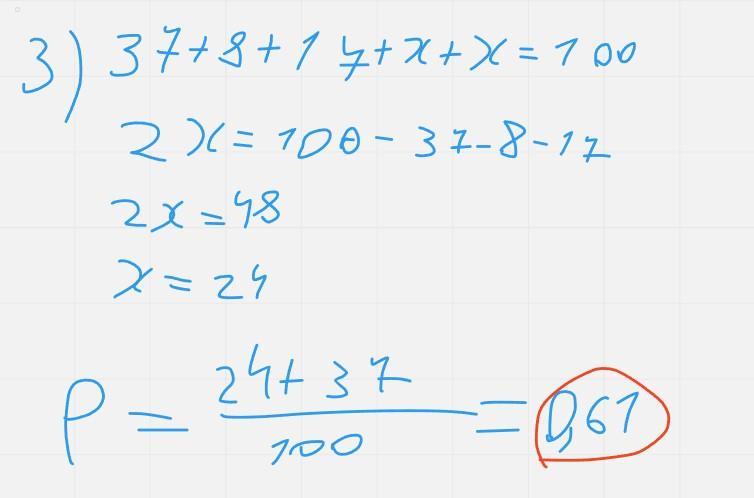 3) 37+8+17+x+x=100
2x=100-37-8-17
2x=48
x=24
P = (24+37)/100 = 0,61